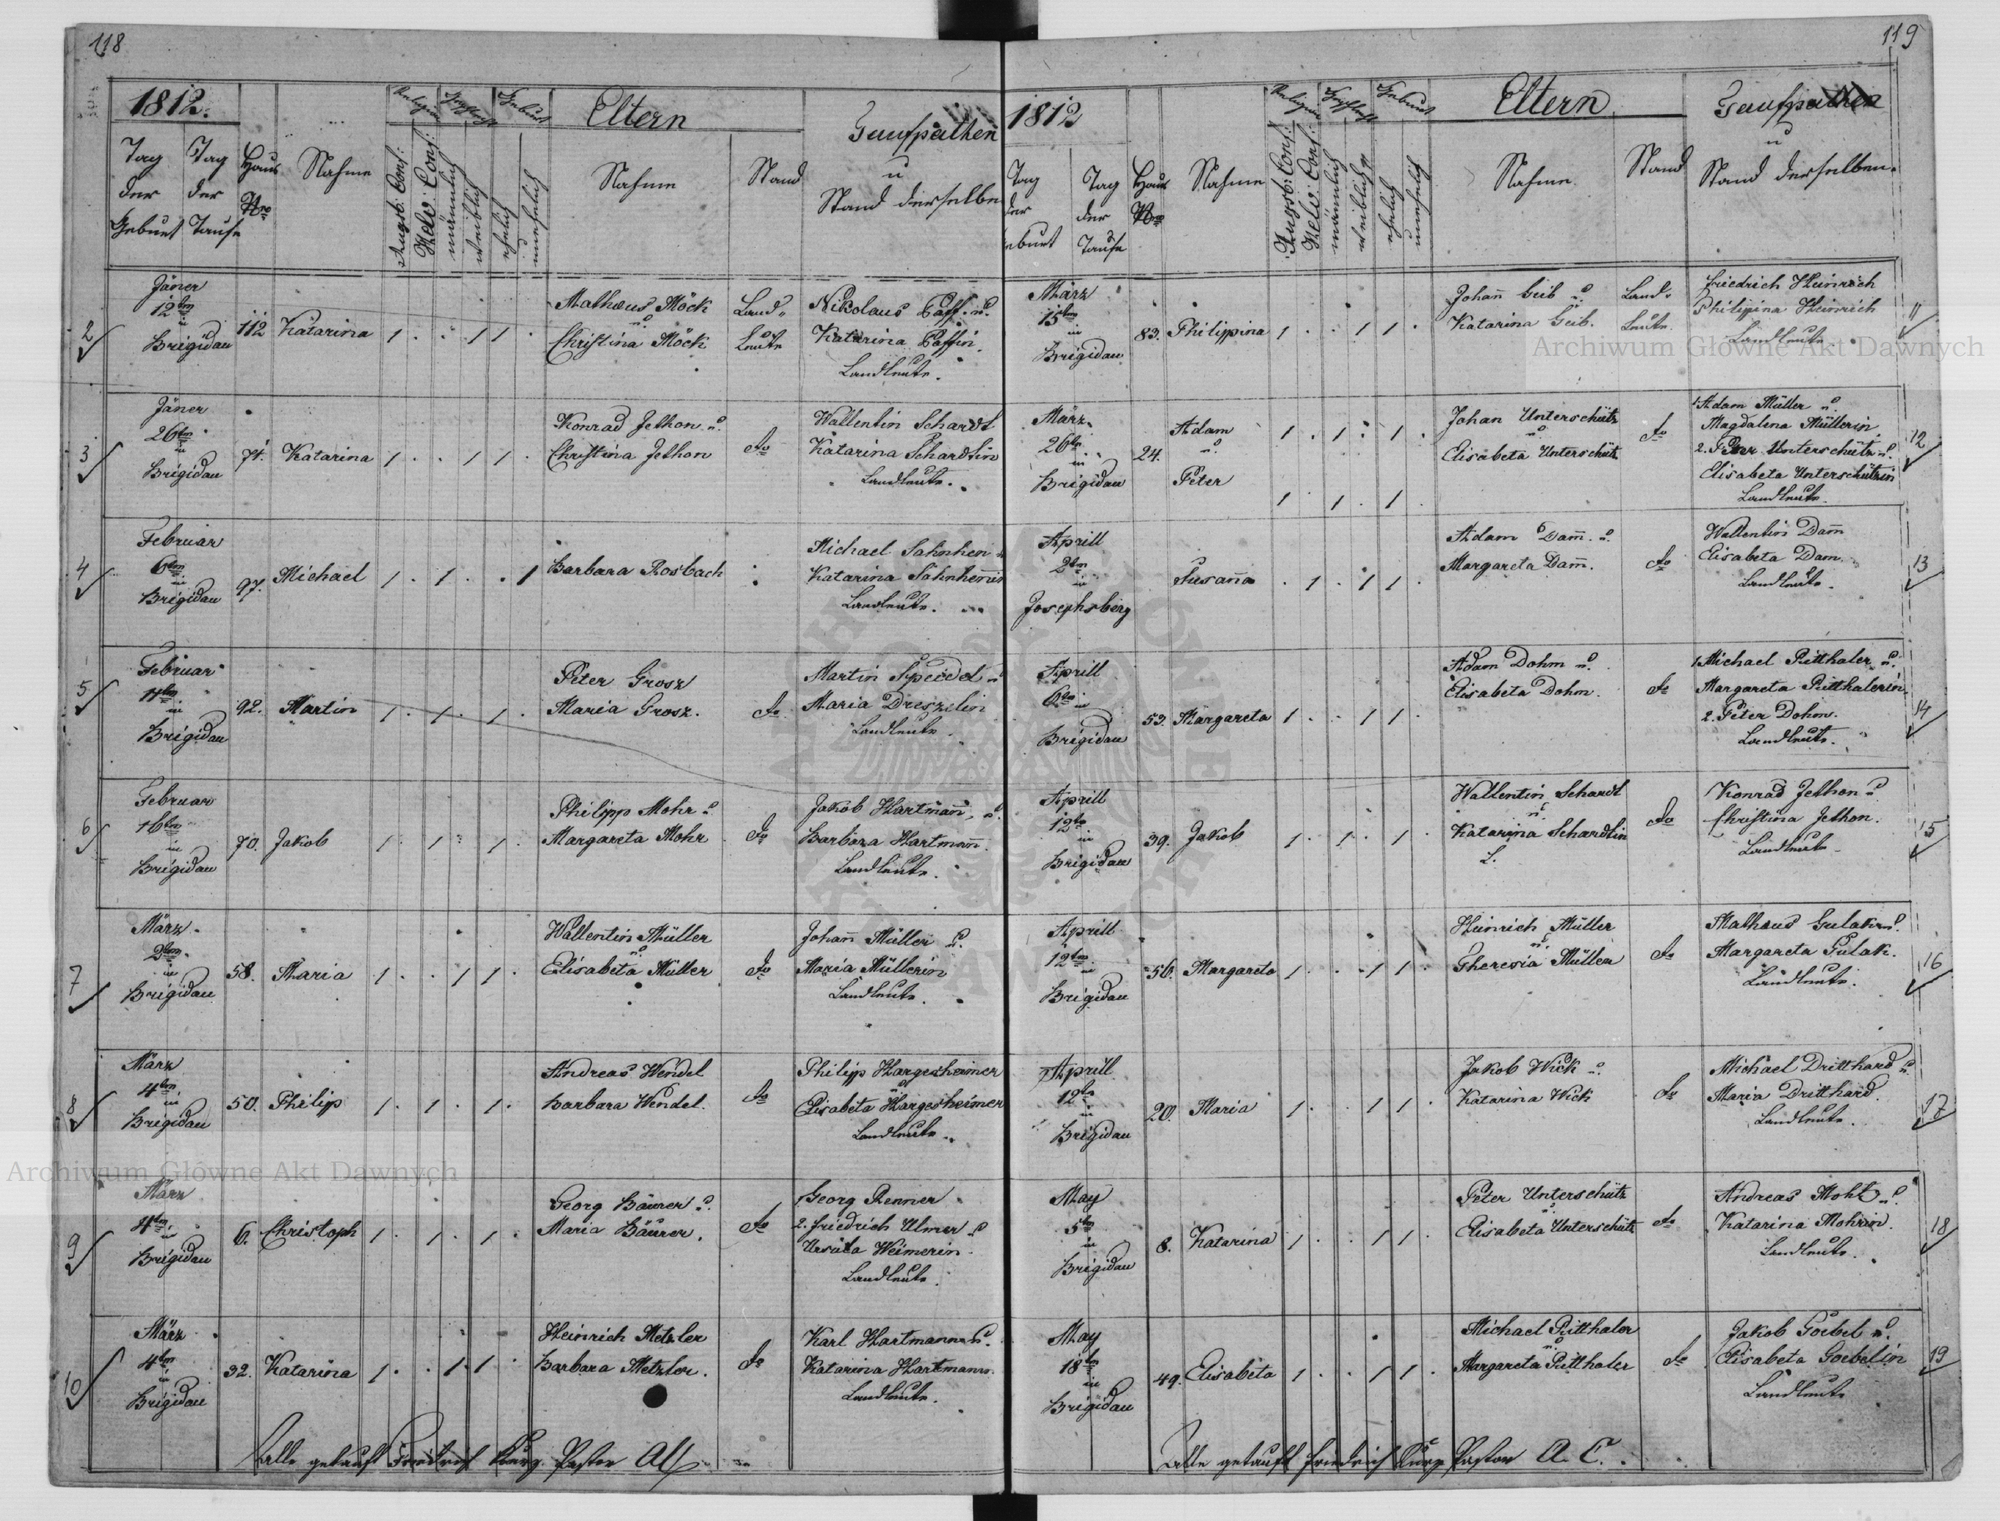 118
1812.
Religion
Geschlecht
Geburt
Eltern
Taufpathen
u
Stand derselben
Tag der Geburt
Tag der Taufe
Haus Nro
Nahme
Augsb: Conf:
Helv: Conf:
männlich
weiblich
ehelich
unehelich
Nahme
Stand
2
Jäner
12ten
in
Brigidau
112
Katarina
1 . . 1 1 .
Mathæus Möck
u.
Christina Möck
Land-
Leute
Nikolaus Pfaff u.
Katarina Pfaffin.
Landleute.
3
Jäner
26ten
in
Brigidau
74.
Katarina
1 . . 1 1 .
Konrad Jethon u.
Christina Jethon
do
Wallentin Schardt
Katarina Schardtin
Landleute.
4
Februar
6ten
in
Brigidau
97.
Michael
1 . 1 . . 1
Barbara Rosbach
Michael Sahnhen
Katarina
Landleute.
5
Februar
11ten
in
Brigidau
92.
Martin
1 . 1 . 1 .
Peter Grosz
Maria Grosz.
do
Martin Speidel u.
Maria Dreszelin
Landleute.
6
Februar
16ten
in
Brigidau
70.
Jakob
1 . 1 . 1 .
Philipp Mohr u.
Margareta Mohr
do
Jakob Hartmañ, u.
Barbara Hartmañ.
Landleute.
7
März
2ten
in
Brigidau
58.
Maria
1 . . 1 1 .
Wallentin Müller
u.
Elisabeta Müller
do
Johañ Müller u.
Maria Müllerin
Landleute.
8
März
4ten
in
Brigidau
50.
Philip
1 . 1 . 1 .
Andreas Wendel
Barbara Wendel.
do
Philip Hargesheimer
Elisabeta Hargesheimer
Landleute.
9
März
4ten
in
Brigidau
6.
Christoph
1 . 1 . 1 .
Georg Bäurer u.
Maria Bäurer.
do
1 Georg Renner
2. Friedrich Ulmer u.
Ursula Weimerin.
Landleute.
10
März
4ten
in
Brigidau
32.
Katarina
1 . . 1 1 .
Heinrich Metzler
Barbara Metzler.
do
Karl Hartmann u.
Katarina Hartmann.
Landleute.
alle getauft Friedrich Pastor
119
1812
Religion
Geschlecht
Geburt
Eltern
Taufpathen
u
Stand derselben.
Tag der Geburt
Tag der Taufe
Haus Nro
Nahme
Augsb: Conf:
Helv: Conf:
männlich
weiblich
ehelich
unehelich
Nahme
Stand
März
15ten
in
Brigidau
83.
Philippina
1 . . 1 1 .
Johañ Geib u.
Katarina Geib.
Land-
Leute.
Friedrich Heinrich
Philippina Heinrich
Landleute.
11
März
26ten
in
Brigidau
24.
Adam
u.
Peter
1 . 1 . 1 .
1 . 1 . 1
Johan Unterschütz
u.
Elisabeta Unterschütz
do
1. Adam Müller u.
Magdalena Müllerin
2. Peter Unterschütz u.
Elisabeta Unterschützin
Landleute.
12
Aprill
2ten
in
Josephsberg
Susaña
. 1 . 1 1 .
Adam Dam̃. u.
Margareta Dam̃.
do
Wallentin Dam̃
Elisabeta Dam.
Landleute.
13
Aprill
6ten
in
Brigidau
53.
Margareta
1 . . 1 1 .
Adam Dohm u.
Elisabeta Dohm.
do
1. Michael Ritthaler u.
Margareta Ritthalerin.
2. Peter Dohm.
Landleute.
14
Aprill
12te
in
Brigidau
39.
Jakob
1 . 1 . 1 .
Wallentin Schardt
u.
Katarina Schardtin
do
Konrad Jethon u.
Christina Jethon.
Landleute
15
Aprill
12ten
in
Brigidau
56.
Margareta
1 . . 1 1 .
Heinrich Müller
u.
Theresia Müller
do
Mathæus Gulak u.
Margareta Gulak.
Landleute.
16
Aprill
12te
in
Brigidau
20.
Maria
1 . . 1 1 .
Jakob Wick u.
Katarina Wick
do
Michael Dritthard u.
Maria Dritthard.
Landleute.
17
May
5ten
in
Brigidau
8.
Katarina
1 . . 1 1 .
Peter Unterschütz
u.
Elisabeta Unterschütz
do
Andreas Moht u.
Katarina Mohrin.
Landleute.
18
May
18ten
in
Brigidau
49.
Elisabeta
1 . . 1 1 .
Michael Ritthaler
u.
Margareta Ritthaler
do
Jakob Goebel u.
Elisabeta Goebelin
Landleute
19
alle getauft Friedrich Pastor A. C.
Archiwum Główne Akt Dawnych
Archiwum Główne Akt Dawnych